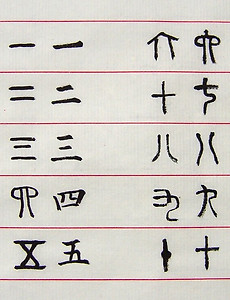 一 一 六 六
二 二 七 七
三 三 八 八
四 四 九 九
五 五 十 十